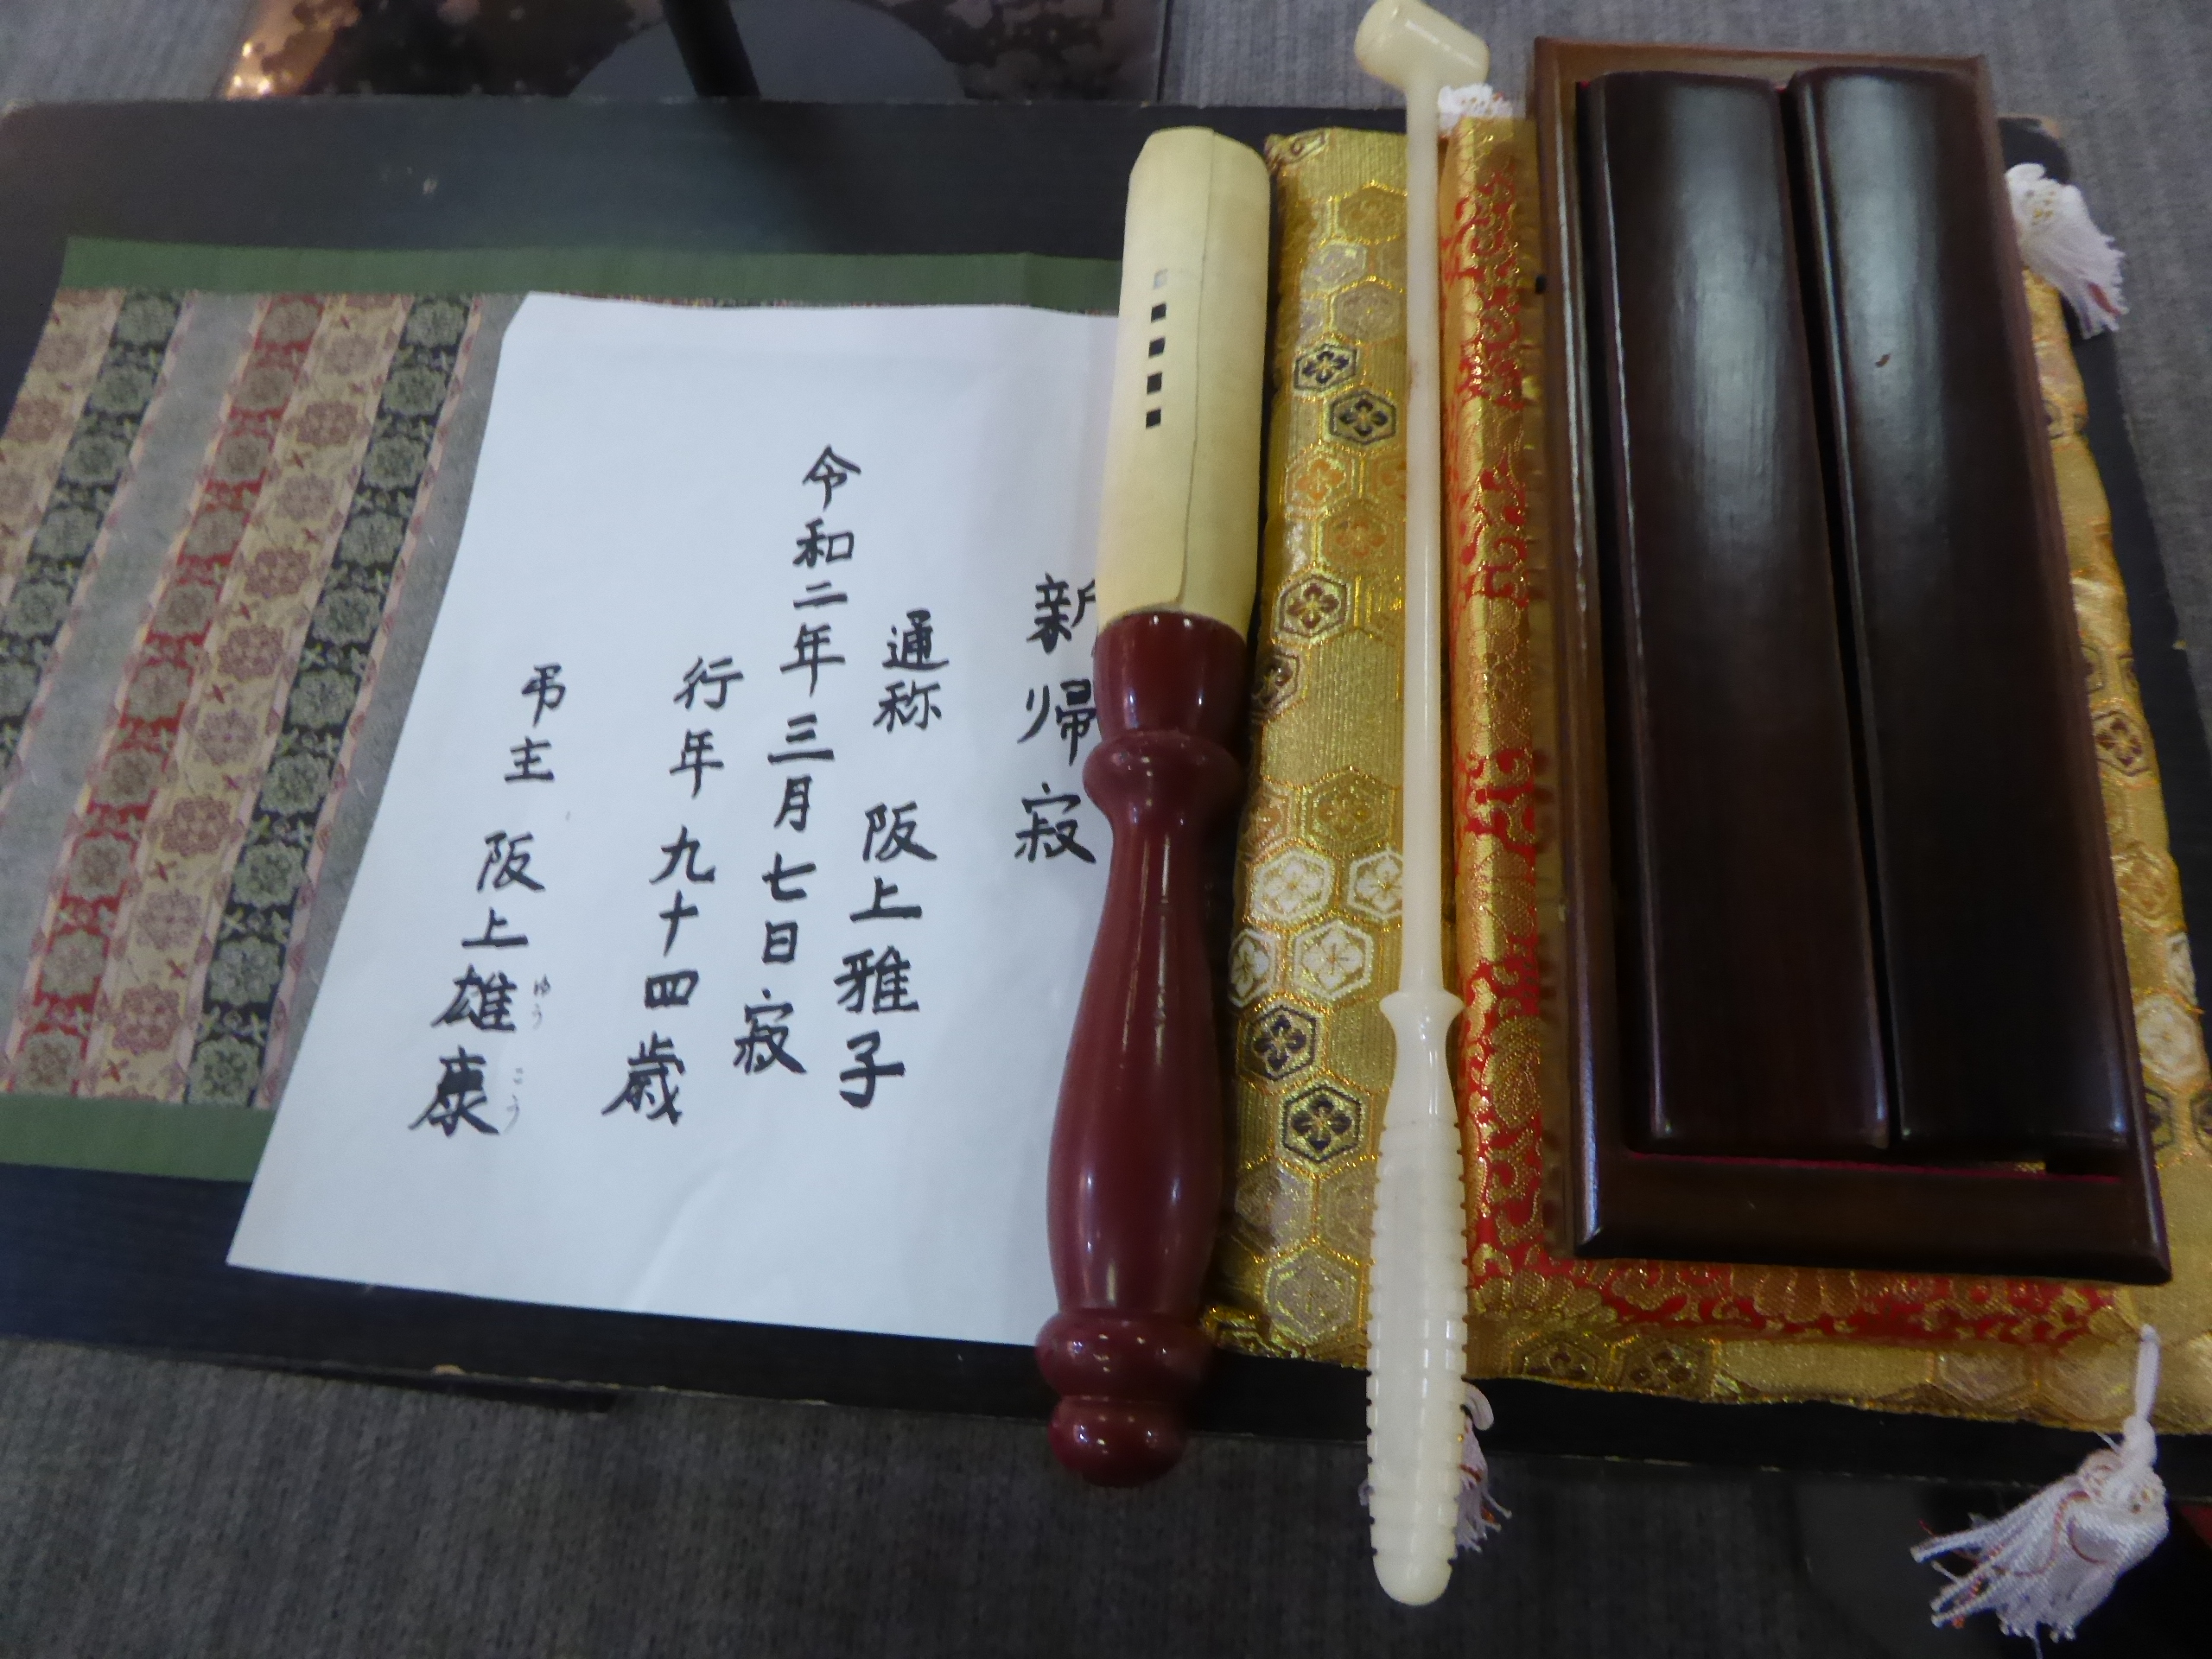 新帰寂
通称 阪上雅子
令和二年三月七日寂
行年九十四歳
弔主 阪上雄康
ゆう
こう